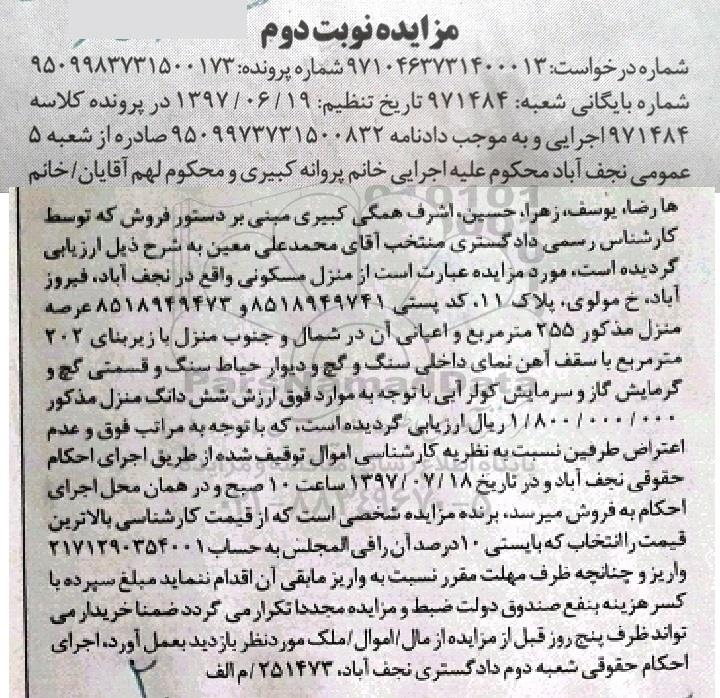 مزایده نوبت دوم
شماره درخواست: ۹۷۱۰۴۶۳۷۳۱۴۰۰۰۱۳ شماره پرونده: ۹۵۰۹۹۸۳۷۳۱۵۰۰۱۷۳
شماره بایگانی شعبه: ۹۷۱۴۸۴ تاریخ تنظیم: ۱۳۹۷/۰۶/۱۹ در پرونده کلاسه
۹۷۱۴۸۴ اجرایی و به موجب دادنامه ۹۵۰۹۹۷۳۷۳۱۵۰۰۸۳۲ صادره از شعبه ۵
عمومی نجف آباد محکوم علیه اجرایی خانم پروانه کبیری و محکوم لهم آقایان/خانم
ها رضا، یوسف، زهرا، حسین، اشرف همگی کبیری مبنی بر دستور فروش که توسط
کارشناس رسمی دادگستری منتخب آقای محمدعلی معین به شرح ذیل ارزیابی
گردیده است، مورد مزایده عبارت است از منزل مسکونی واقع در نجف آباد، فیروز
آباد، خ مولوی، پلاک ۱۱، کد پستی ۸۵۱۸۹۴۹۷۴۱ و ۸۵۱۸۹۴۹۴۷۳ عرصه
منزل مذکور ۲۵۵ مترمربع و اعیانی آن در شمال و جنوب منزل با زیربنای ۲۰۲
مترمربع با سقف آهن نمای داخلی سنگ و گچ و دیوار حیاط سنگ و قسمتی گچ و
گرمایش گاز و سرمایش کولر آبی با توجه به موارد فوق ارزش شش دانگ منزل مذکور
۱/۸۰۰/۰۰۰/۰۰۰ ریال ارزیابی گردیده است، که با توجه به مراتب فوق و عدم
اعتراض طرفین نسبت به نظریه کارشناسی اموال توقیف شده از طریق اجرای احکام
حقوقی نجف آباد و در تاریخ ۱۳۹۷/۰۷/۱۸ ساعت ۱۰ صبح و در همان محل اجرای
احکام به فروش میرسد، برنده مزایده شخصی است که از قیمت کارشناسی بالاترین
قیمت را انتخاب که بایستی ۱۰درصد آن رافی المجلس به حساب ۲۱۷۱۲۹۰۳۵۴۰۰۱
واریز و چنانچه ظرف مهلت مقرر نسبت به واریز مابقی آن اقدام ننماید مبلغ سپرده با
کسر هزینه بنفع صندوق دولت ضبط و مزایده مجددا تکرار می گردد ضمنا خریدار می
تواند ظرف پنج روز قبل از مزایده از مال/اموال/ملک موردنظر بازدید بعمل آورد، اجرای
احکام حقوقی شعبه دوم دادگستری نجف آباد، ۲۵۱۴۷۳/م الف
۲
ParsNamadData